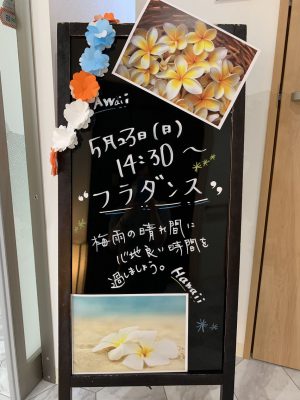 Hawaii
5月23日(日)
14:30～
"フラダンス"
梅雨の晴れ間に
心地良い時間を
過しましょう。
Hawaii